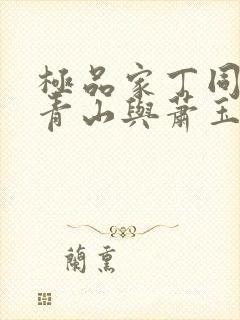 極品家丁同
青山與蕭玉
蘭熏